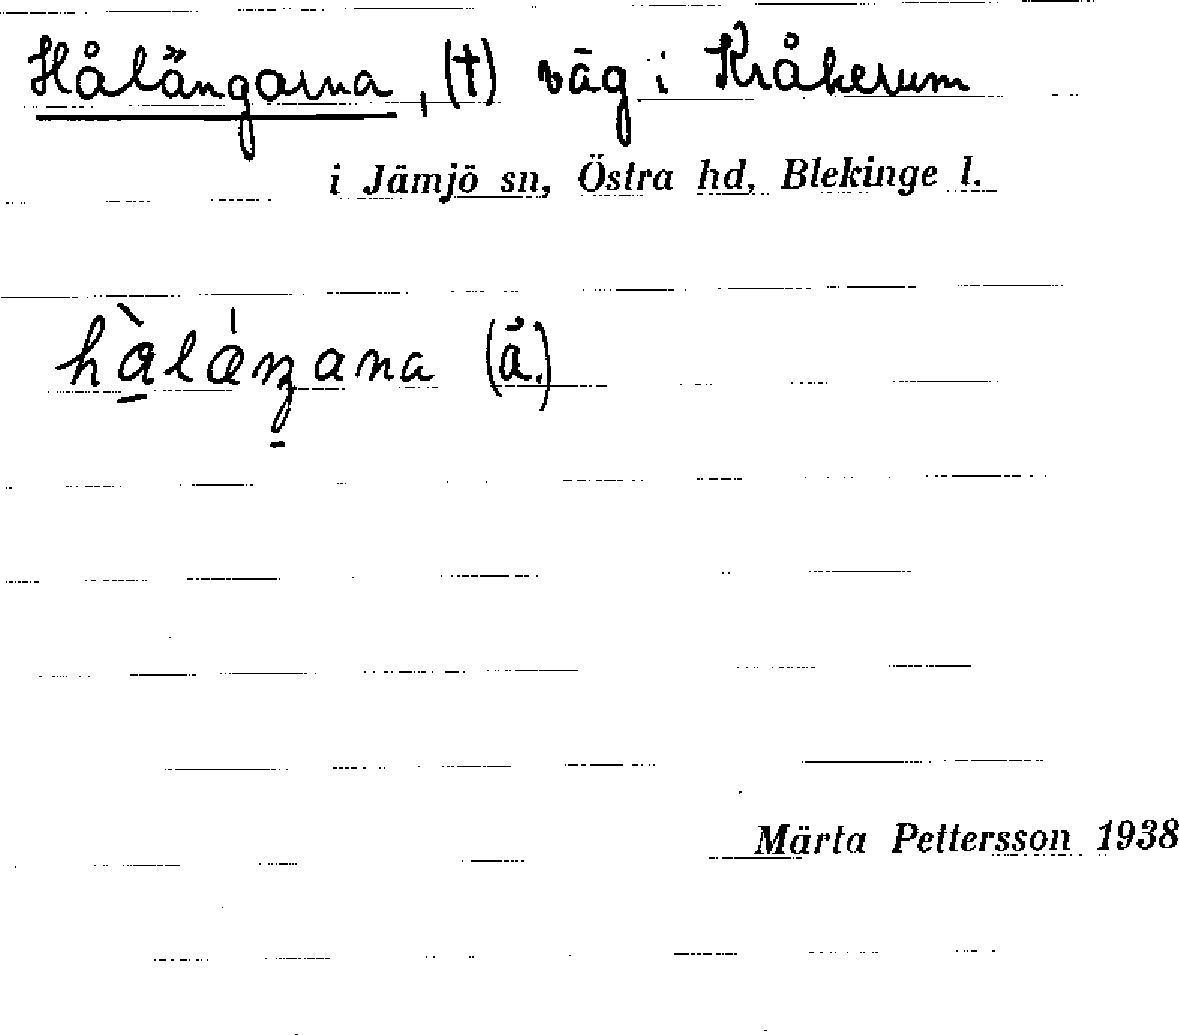 Hålängarna, (†) väg i Kråkerum
i Jämjö sn, Östra hd, Blekinge l.
hàlánzana (å.)
Märta Pettersson 1938